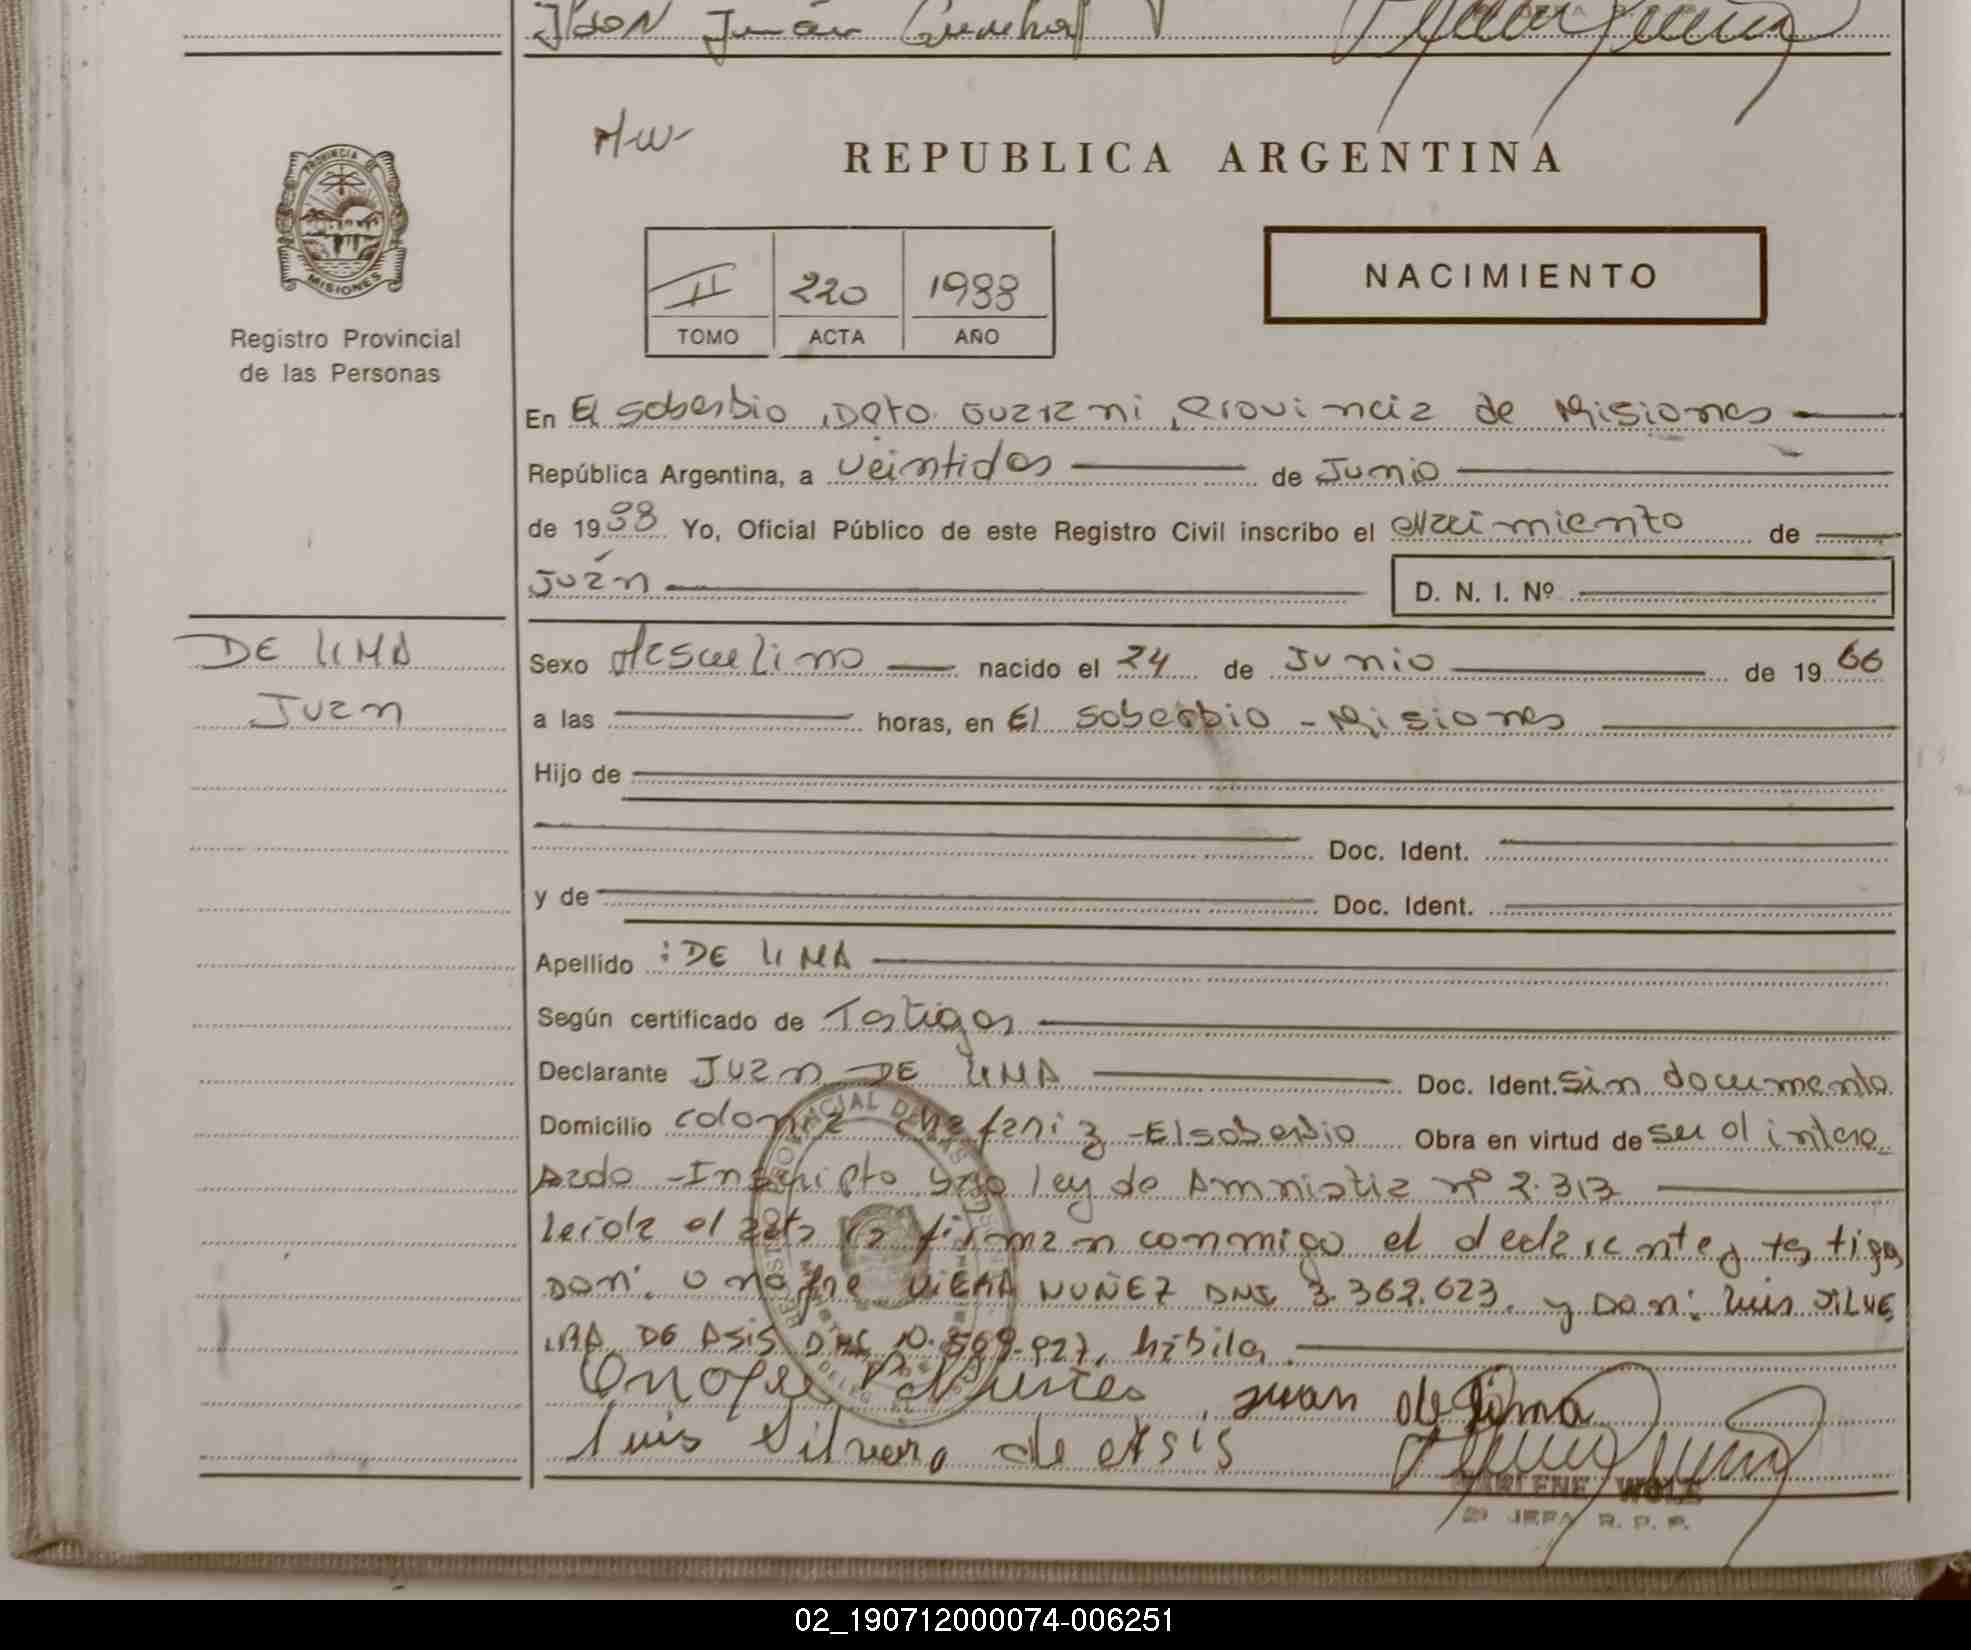 Juan
REPUBLICA ARGENTINA
PROVINCIA DE
MISIONES
Registro Provincial
de las Personas
II 220 1988
TOMO ACTA AÑO
NACIMIENTO
En El Soberbio, Dpto. Guarani, Provincia de Misiones
República Argentina, a veintidos de Junio
de 1988 Yo, Oficial Público de este Registro Civil inscribo el Nacimiento de
Juán
D. N. I. Nº
DE LIMA
Juan
Sexo Masculino nacido el 24 de Junio de 1966
a las horas, en El Soberbio - Misiones
Hijo de
Doc. Ident.
y de Doc. Ident.
Apellido : DE LIMA
Según certificado de Testigos
Declarante Juan DE LIMA Doc. Ident. Sin documento
Domicilio colonia - El Soberbio Obra en virtud de ser el intere
sado - Inscripto bajo ley de Amnistia nº 2.313
leida el acta la firman conmigo el declarante y testigos
Don: Onofre VIERA NUÑEZ DNI 3.362.623. y Don: Luis SILVE
IRA DE ASIS DNI 10.569.927, hábiles.
Onofre Nunes juan de lima
Luis Silvera de Asis
MARLENE WOLF
JEFA R. P. P.
02_190712000074-006251